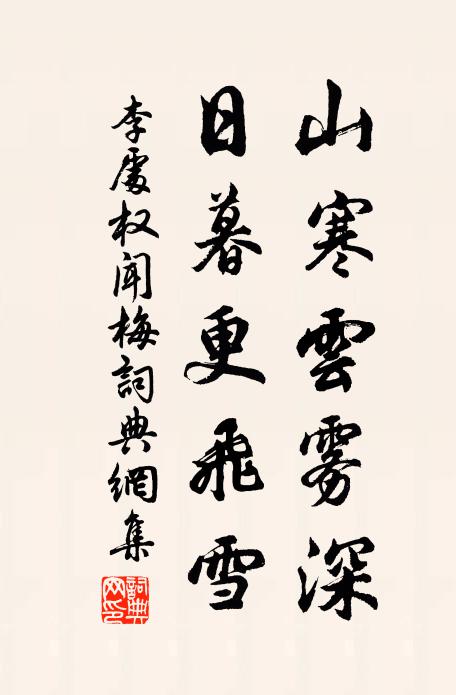 山寒雲雾深
日暮更飛雪
李處权闻梅詞典網集
詞典网印